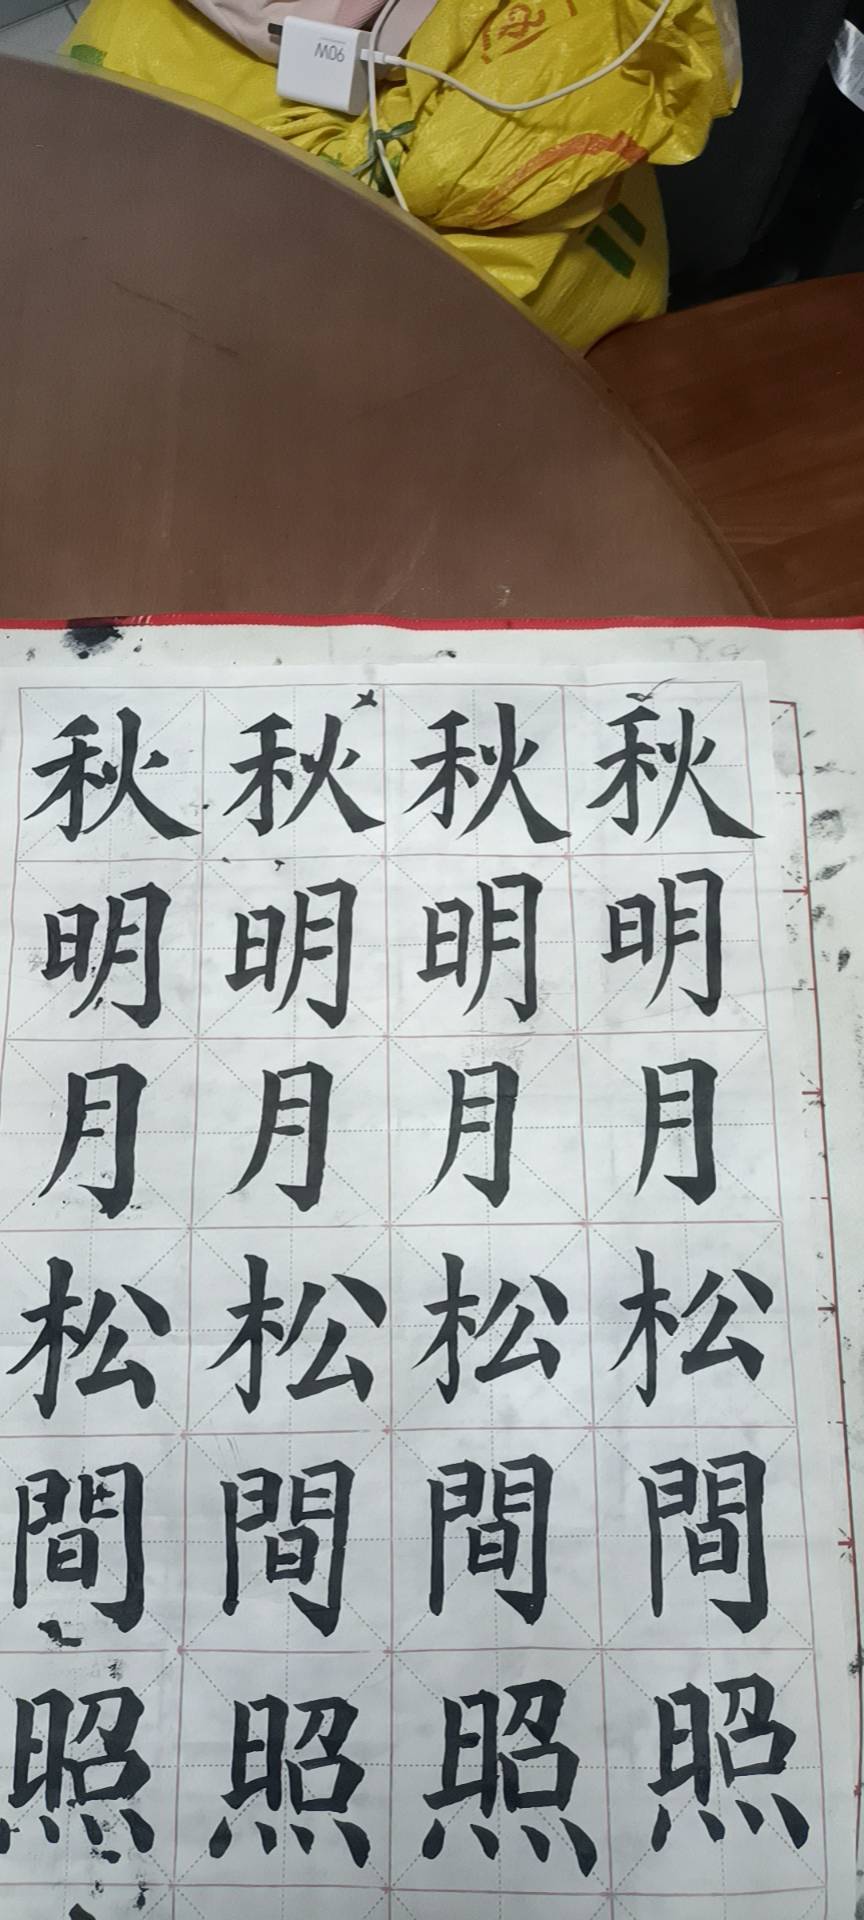 90W
秋秋秋秋
明明明明
月月月月
松松松松
間間間間
照照照照